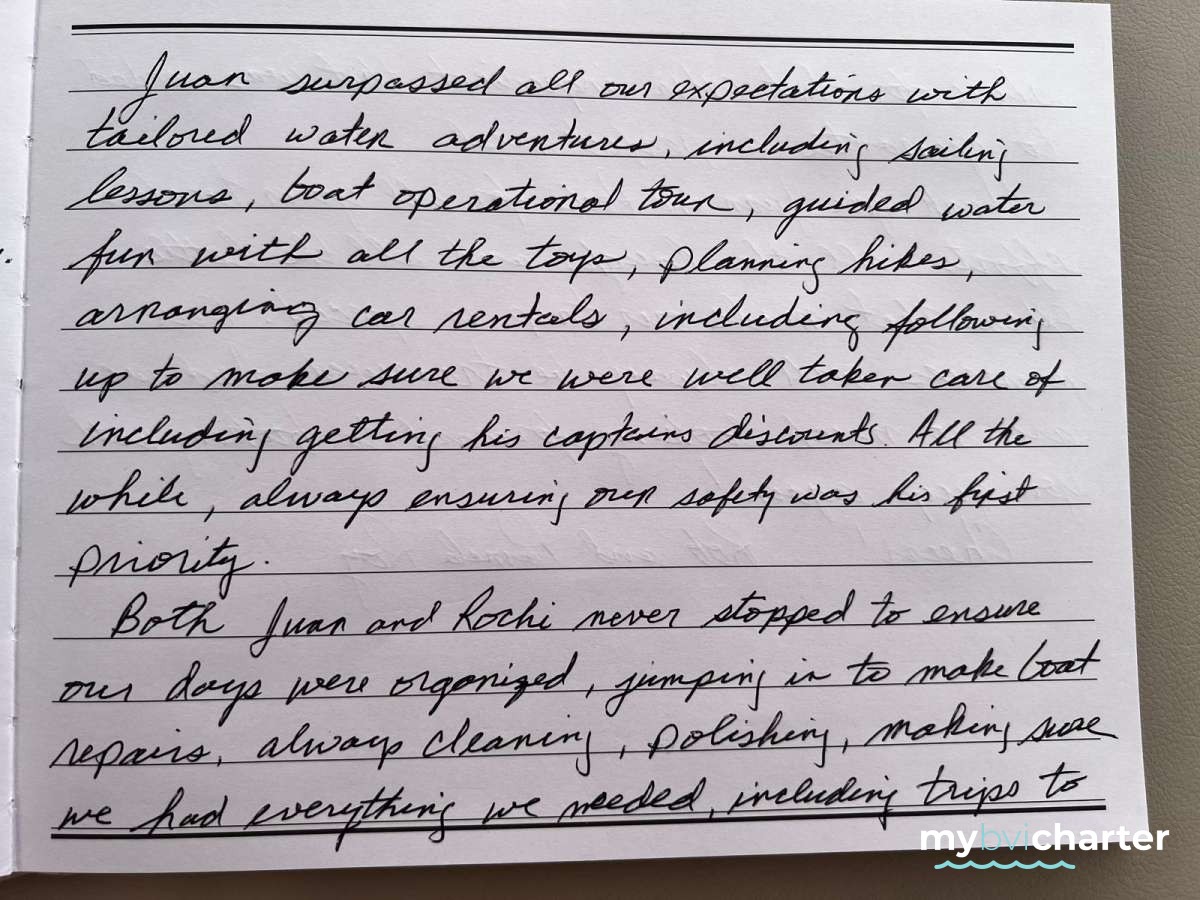 Juan surpassed all our expectations with
tailored water adventures, including sailing
lessons, boat operational tour, guided water
fun with all the toys, planning hikes,
arranging car rentals, including following
up to make sure we were well taken care of
including getting his captains discounts. All the
while, always ensuring our safety was his first
priority.
Both Juan and Rochi never stopped to ensure
our days were organized, jumping in to make boat
repairs, always cleaning, polishing, making sure
we had everything we needed, including trips to
mybvicharter